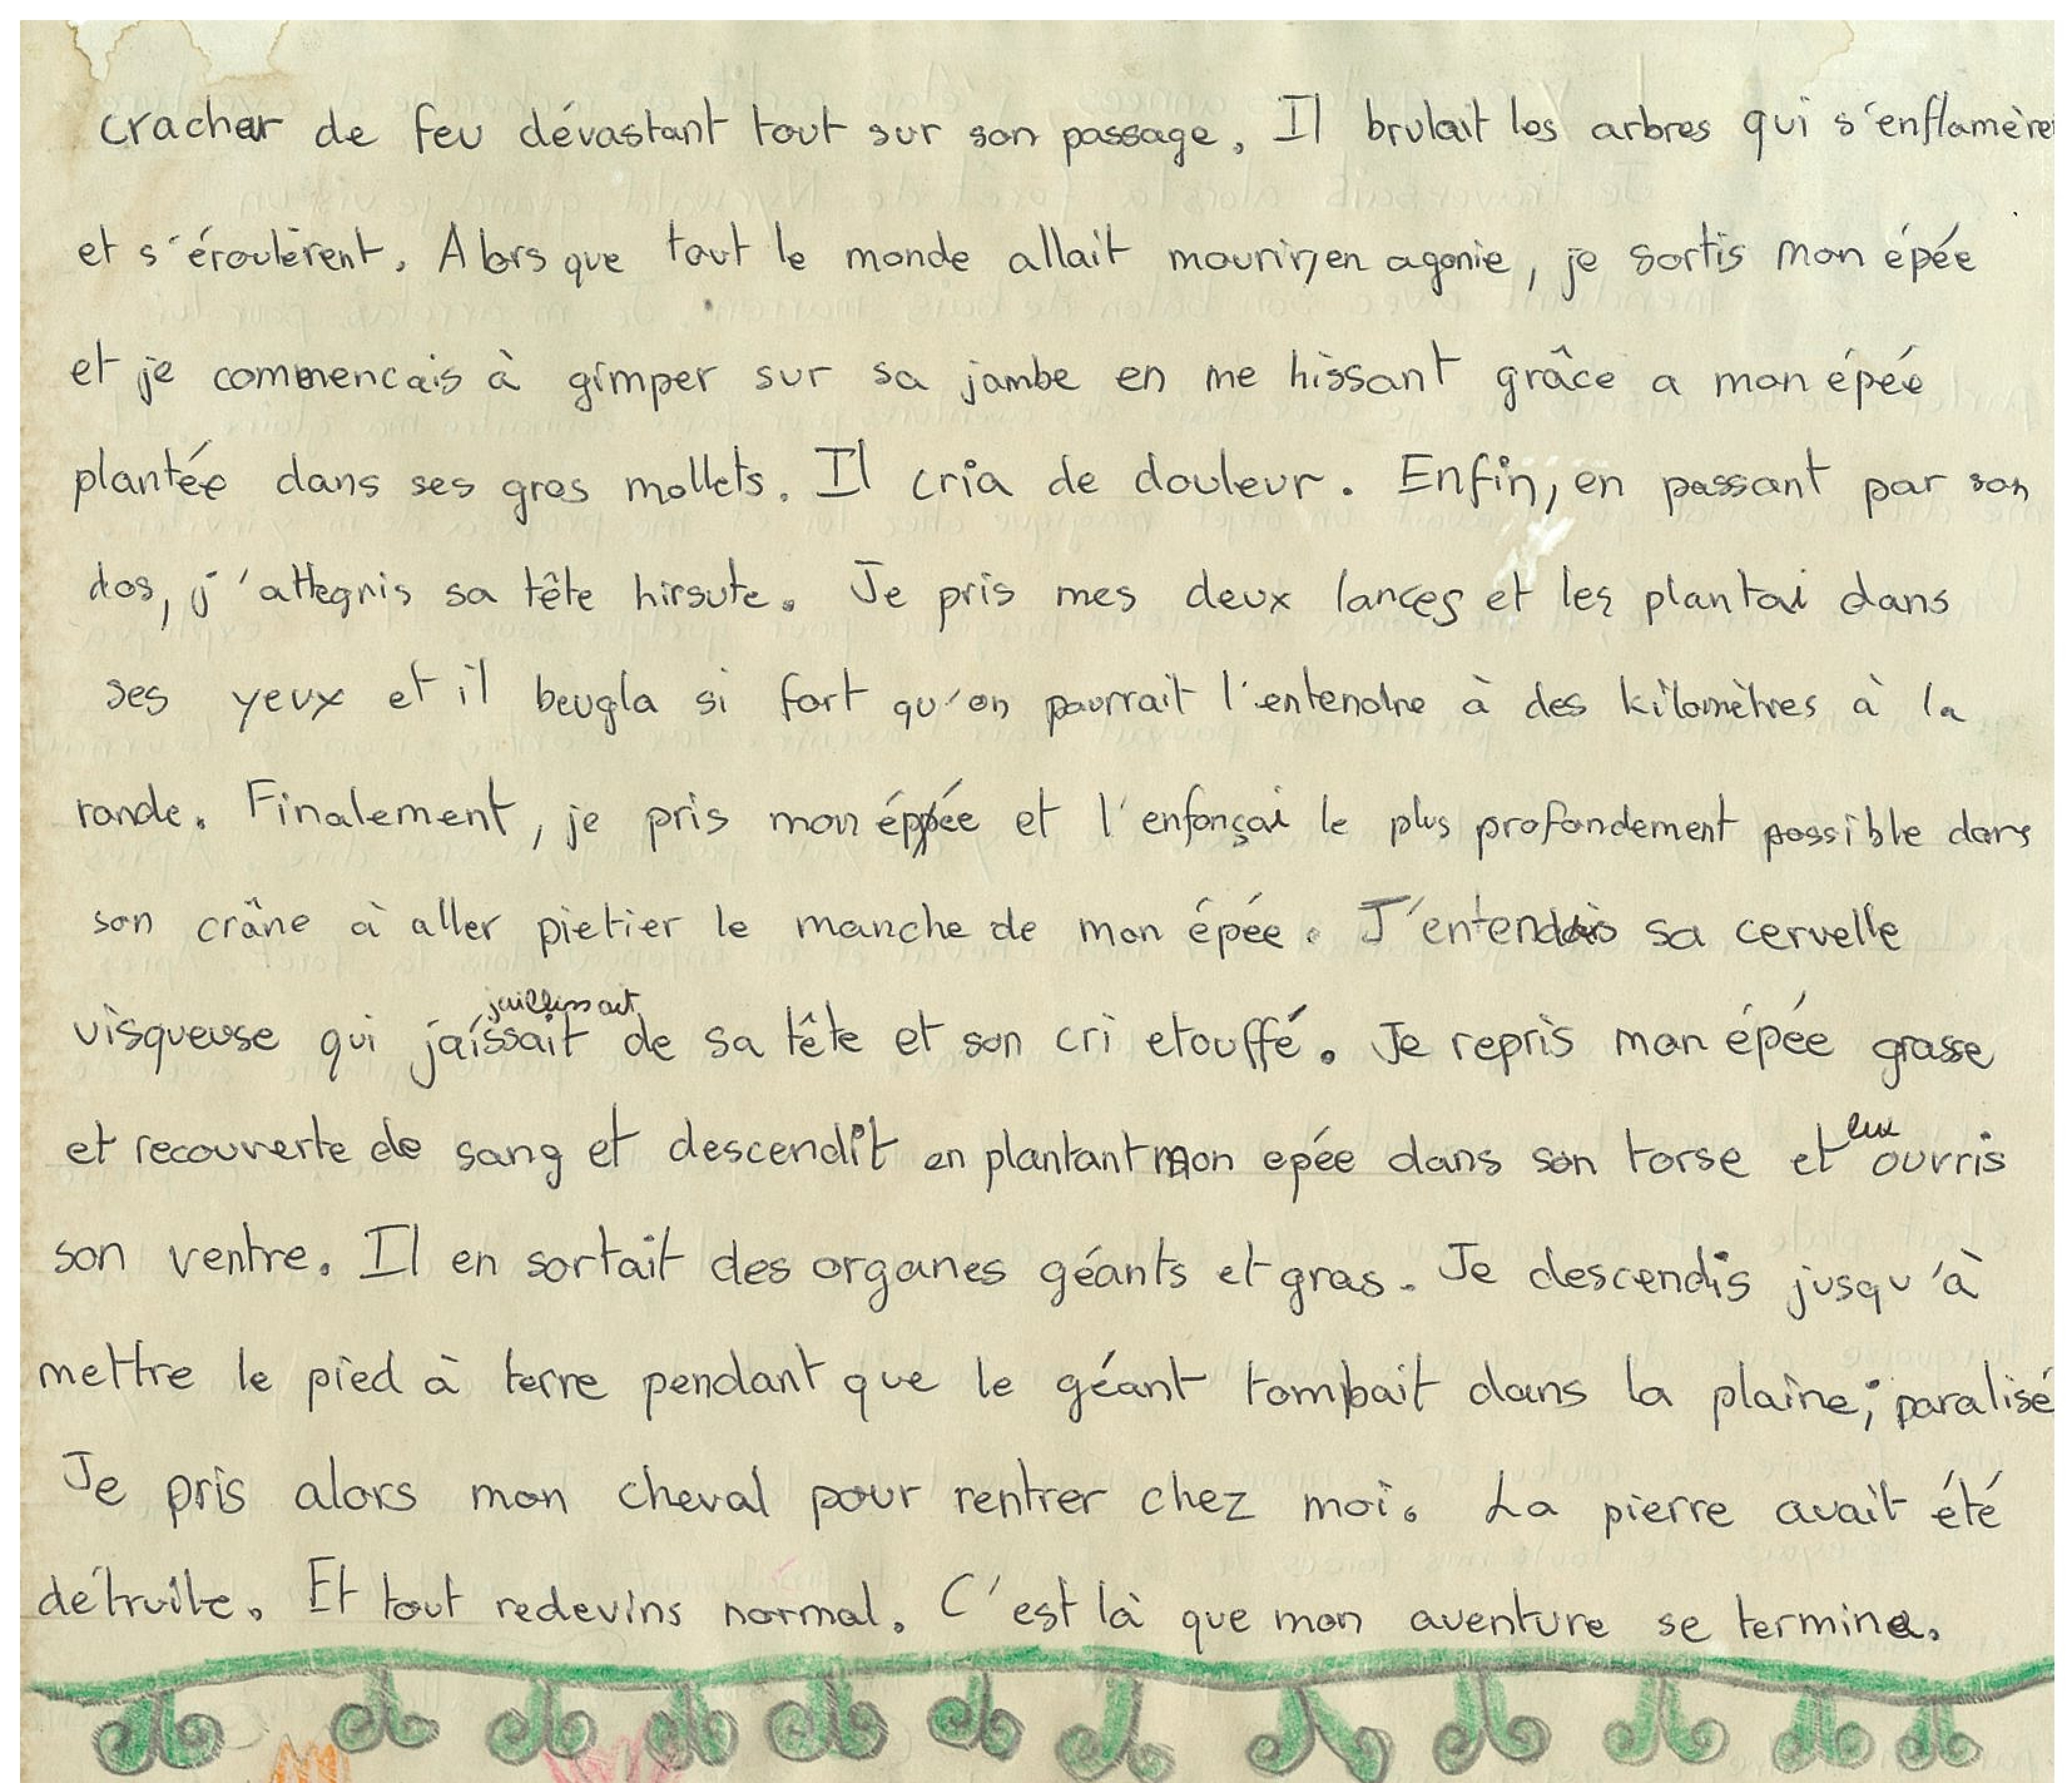 cracher de feu dévastant tout sur son passage. Il brulait les arbres qui s'enflamère
et s'éroulèrent. Alors que tout le monde allait mourir, en agonie, je sortis mon épée
et je commencais à gimper sur sa jambe en me hissant grâce a mon épée
plantée dans ses gros mollets. Il cria de douleur. Enfin, en passant par son
dos, j'attegnis sa tête hirsute. Je pris mes deux lances et les plantai dans
ses yeux et il beugla si fort qu'on pourrait l'entendre à des kilomètres à la
ronde. Finalement, je pris mon épée et l'enfonçai le plus profondement possible dans
son crâne à aller pietier le manche de mon épée. J'entendais sa cervelle
jaillissait
visqueuse qui jaíssait de sa tête et son cri etouffé. Je repris mon épée grasse
et recouverte de sang et descendit en plantant mon epée dans son torse et lui ouvris
son ventre. Il en sortait des organes géants et gras. Je descendis jusqu'à
mettre le pied à terre pendant que le géant tombait dans la plaine, paralisé
Je pris alors mon cheval pour rentrer chez moi. La pierre avait été
détruite. Et tout redevins normal. C'est là que mon aventure se termine.